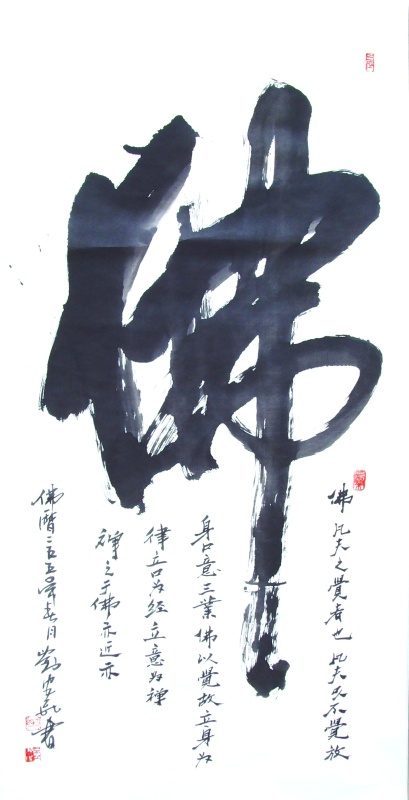 佛
佛凡夫之覺者也凡夫以不覺放
身口意三業佛以覺故立身为
律立口为经立意为禪
禪之于佛亦近亦
佛曆二五五年春月劉書